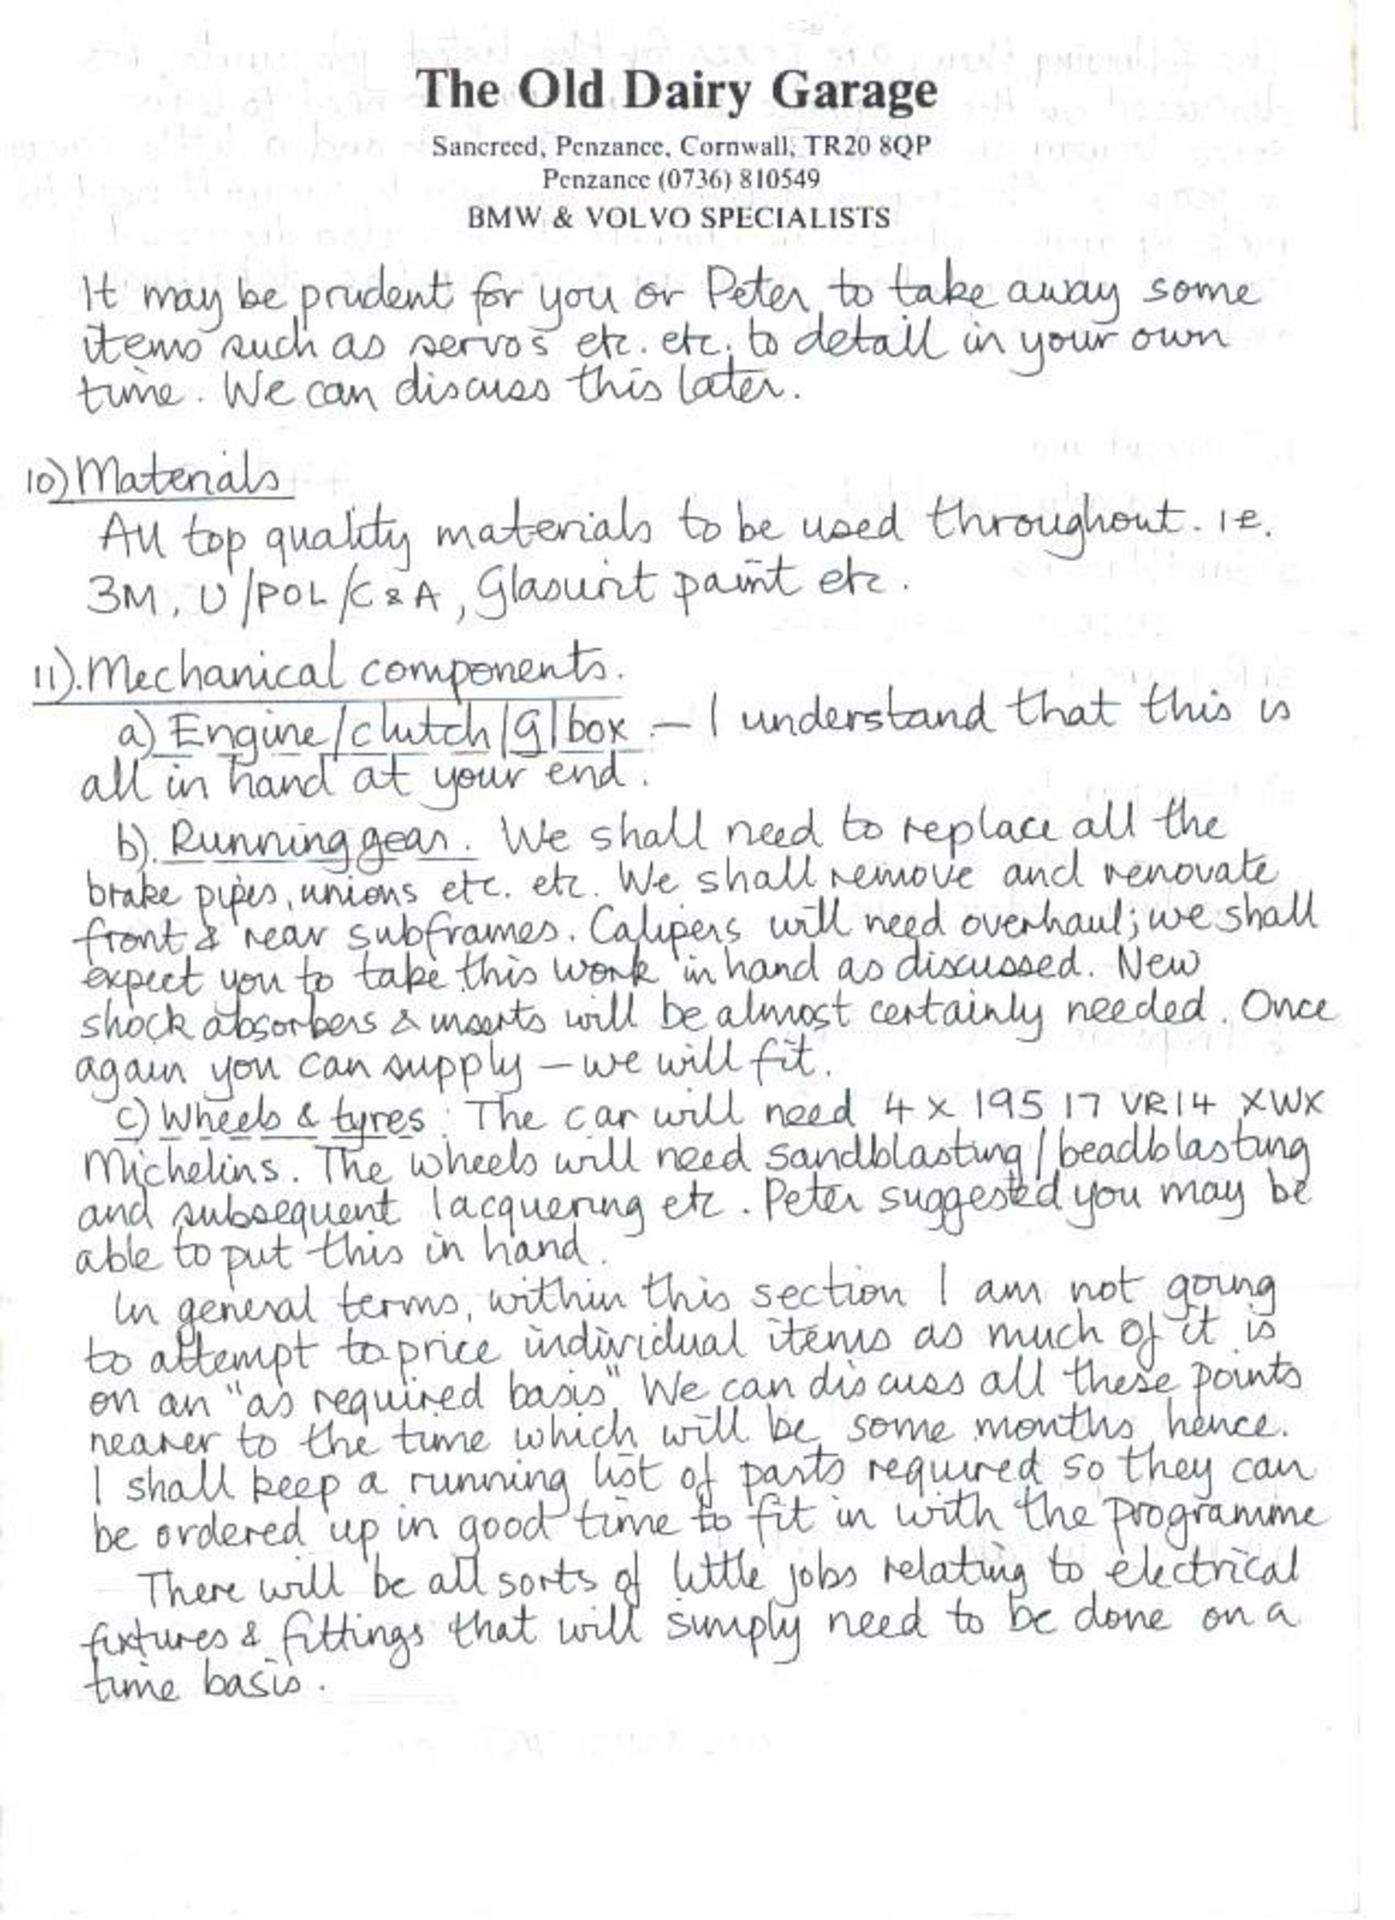 The Old Dairy Garage
Sancreed, Penzance, Cornwall, TR20 8QP
Penzance (0736) 810549
BMW & VOLVO SPECIALISTS
It may be prudent for you or Peter to take away some
items such as servos etc. etc. to detail in your own
time. We can discuss this later.
10) Materials
All top quality materials to be used throughout. ie.
3M, U/POL/C&A, Glasurit paint etc.
11). Mechanical components.
a) Engine/clutch/g/box. – I understand that this is
all in hand at your end.
b). Running gear. We shall need to replace all the
brake pipes, unions etc. etc. We shall remove and renovate
front & rear subframes. Calipers will need overhaul; we shall
expect you to take this work in hand as discussed. New
shock absorbers & inserts will be almost certainly needed. Once
again you can supply – we will fit.
c) Wheels & tyres: The car will need 4 x 195 17 VR14 XWX
Michelins. The wheels will need sandblasting/beadblasting
and subsequent lacquering etc. Peter suggested you may be
able to put this in hand.
In general terms, within this section I am not going
to attempt to price individual items as much of it is
on an "as required basis" We can discuss all these points
nearer to the time which will be some months hence.
I shall keep a running list of parts required so they can
be ordered up in good time to fit in with the programme
There will be all sorts of little jobs relating to electrical
fixtures & fittings that will simply need to be done on a
time basis.